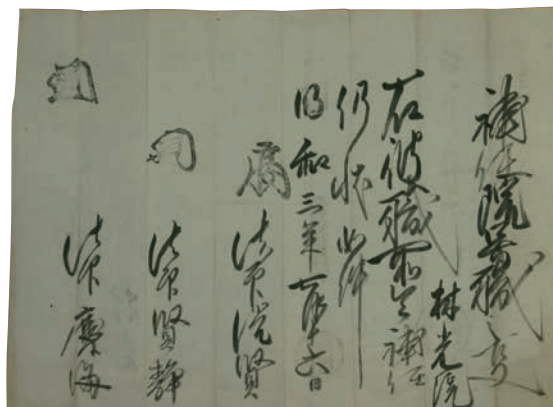 補任院号職之事
林光院
右彼職所令補任
仍状如件
明和三年七月十六日
法印 賢
法印賢静
法印慶海